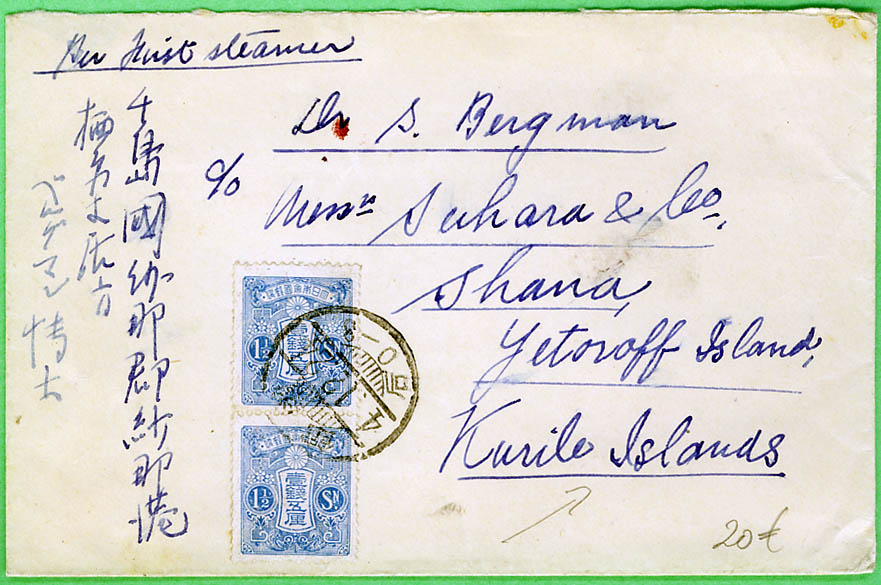 Per First steamer
Dr S. Bergman
c/o Messrs Suhara & Co.,
Shana,
Yetoroff Island,
Kurile Islands
千島國紗那郡紗那港
栖原商店方
ベルグマン博士
大日本帝国郵便
壹錢五厘
1½ Sn
大日本帝国郵便
壹錢五厘
1½ Sn
20€